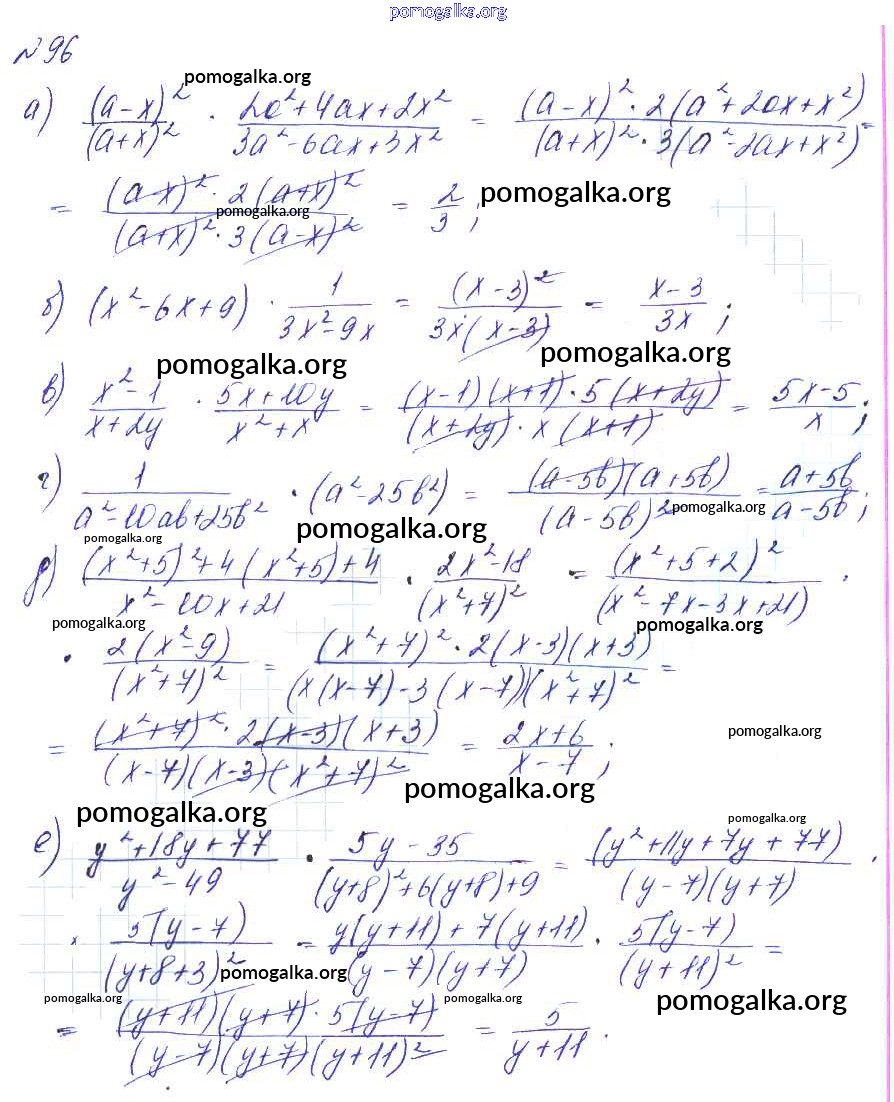 pomogalka.org
№96
pomogalka.org
а) (a-x)²/(a+x)² · (2a²+4ax+2x²)/(3a²-6ax+3x²) = ((a-x)²·2(a²+2ax+x²))/((a+x)²·3(a²-2ax+x²)) =
= ((a-x)²·2(a+x)²)/((a+x)²·3(a-x)²) = 2/3;
pomogalka.org pomogalka.org
б) (x²-6x+9) · 1/(3x²-9x) = (x-3)²/(3x(x-3)) = (x-3)/(3x);
pomogalka.org pomogalka.org
в) (x²-1)/(x+2y) · (5x+10y)/(x²+x) = ((x-1)(x+1)·5(x+2y))/((x+2y)·x(x+1)) = (5x-5)/x;
г) 1/(a²-10ab+25b²) · (a²-25b²) = ((a-5b)(a+5b))/(a-5b)² = (a+5b)/(a-5b);
pomogalka.org pomogalka.org pomogalka.org
д) ((x²+5)²+4(x²+5)+4)/(x²-10x+21) · (2x²-18)/(x²+7)² = (x²+5+2)²/(x²-7x-3x+21) ·
pomogalka.org pomogalka.org
· 2(x²-9)/(x²+7)² = ((x²+7)²·2(x-3)(x+3))/((x(x-7)-3(x-7))(x²+7)²) =
= ((x²+7)²·2(x-3)(x+3))/((x-7)(x-3)(x²+7)²) = (2x+6)/(x-7);
pomogalka.org
pomogalka.org
pomogalka.org pomogalka.org
е) (y²+18y+77)/(y²-49) · (5y-35)/((y+8)²+6(y+8)+9) = (y²+11y+7y+77)/((y-7)(y+7)) ·
× 5(y-7)/(y+8+3)² = (y(y+11)+7(y+11))/((y-7)(y+7)) · 5(y-7)/(y+11)² =
pomogalka.org
pomogalka.org pomogalka.org pomogalka.org
= ((y+11)(y+7)·5(y-7))/((y-7)(y+7)(y+11)²) = 5/(y+11).